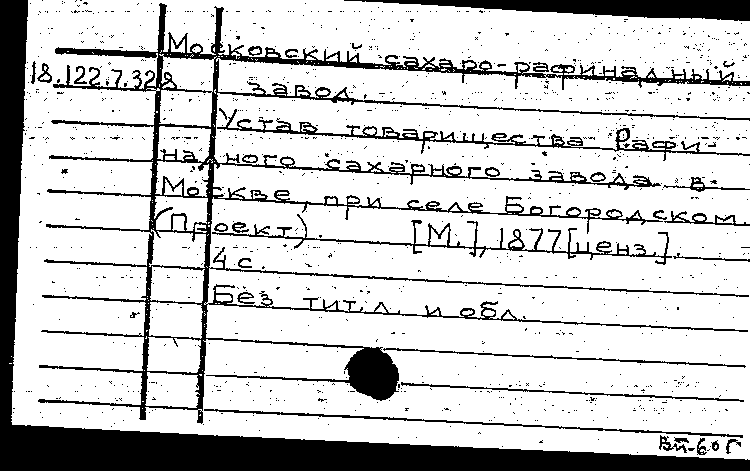 Московский сахаро-рафинадный
18.122.7.328 завод.
Устав товарищества Рафи-
надного сахарного завода в
Москве, при селе Богородском.
(Проект). [М.], 1877 [ценз.].
4 с.
Без тит.л. и обл.
ВП-60г